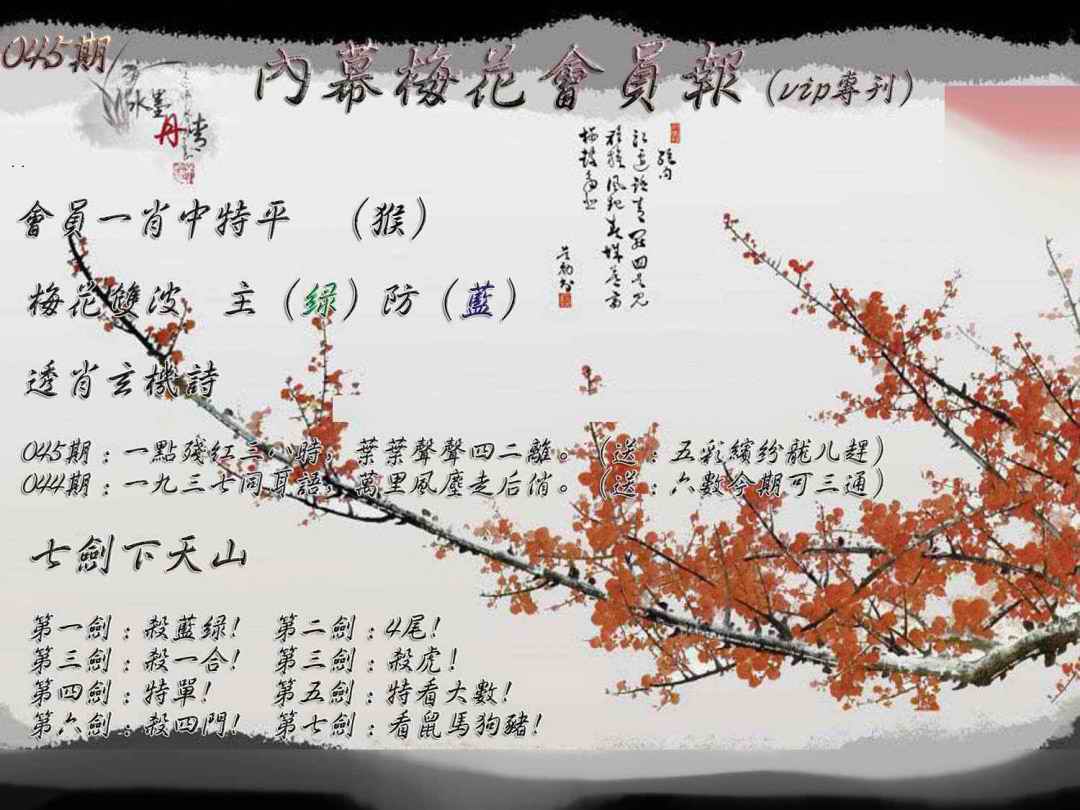 045期
內幕梅花會員報(vip專刊)
水墨
丹青
會員一肖中特平 (猴)
梅花雙波 主(绿)防(藍)
透肖玄機詩
045期:一點殘红三八時,葉葉聲聲四二離。(送:五彩繽紛龍儿趕)
044期:一九三七同耳語,萬里風塵走后俏。(送:六數今期可三通)
七劍下天山
第一劍:殺藍绿! 第二劍:4尾!
第三劍:殺一合! 第三劍:殺虎!
第四劍:特單! 第五劍:特看大數!
第六劍:殺四門! 第七劍:看鼠馬狗豬!